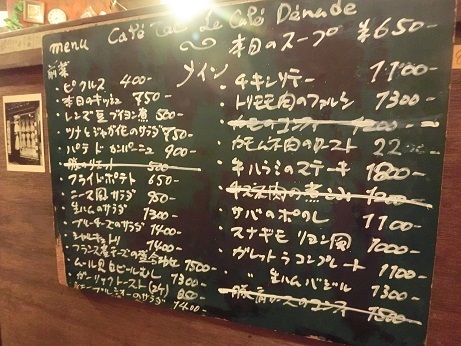 menu Café Le Café Dénade
本日のスープ ¥650-
前菜
・ピクルス 400-
・本日のキッシュ 850-
・レンズ豆ブイヨン煮 500-
・ツナとじゃがイモのサラダ 750-
・パテドカンパーニュ 900-
500-
・フライドポテト 650-
・ニース風サラダ 950-
・生ハムのサラダ 1300-
・ブルーチーズのサラダ 1400-
・シャルキュトリ 1400-
・フランス産チーズの盛合わせ 1500-
・ムール貝ビールむし 1300-
・ガーリックトースト(2ケ) 250-
のサラダ
メイン
・チキンソテー 1100-
・トリモモ肉のファルシ 1300-
・カモのコンフィ 1200-
・カモムネ肉のロースト 22
・牛ハラミのステーキ 1800-
1200-
・サバのポワレ 1100-
・スナギモ リヨン風 1000-
・ガレット ラコンプレート 1100-
・〃 生ハムバジル 1300-
のコンフィ 1500-